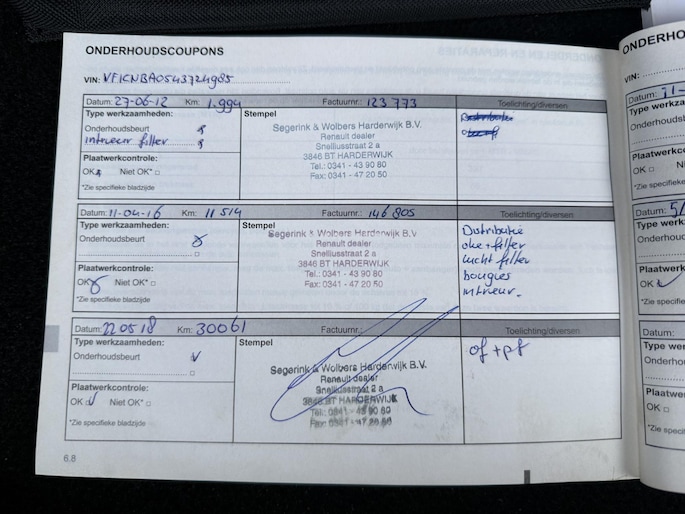 ONDERHOUDSCOUPONS
VIN: VF1CNBA0543724985
Datum: 27-06-12 Km: 1.994 Factuurnr.: 123 773 Toelichting/diversen
Type werkzaamheden: Stempel
Onderhoudsbeurt
interieur filter
Segerink & Wolbers Harderwijk B.V.
Renault dealer
Snelliusstraat 2 a
3846 BT HARDERWIJK
Tel.: 0341 - 43 90 80
Fax: 0341 - 47 20 50
Plaatwerkcontrole:
OK Niet OK*
*Zie specifieke bladzijde
Datum: 11-04-16 Km: 11 514 Factuurnr.: 146 805 Toelichting/diversen
Type werkzaamheden: Stempel
Onderhoudsbeurt
Segerink & Wolbers Harderwijk B.V.
Renault dealer
Snelliusstraat 2 a
3846 BT HARDERWIJK
Tel.: 0341 - 43 90 80
Fax: 0341 - 47 20 50
Distributie
olie + filter
lucht filter
bougies
interieur.
Plaatwerkcontrole:
OK Niet OK*
*Zie specifieke bladzijde
Datum: 220518 Km: 30061 Factuurnr.: Toelichting/diversen
Type werkzaamheden: Stempel
Onderhoudsbeurt
Segerink & Wolbers Harderwijk B.V.
Renault dealer
Snelliusstraat 2 a
3846 BT HARDERWIJK
Tel.: 0341 - 43 90 80
Fax: 0341 - 47 20 50
of + pf
Plaatwerkcontrole:
OK Niet OK*
*Zie specifieke bladzijde
6.8
ONDERHO
VIN:
Datum: 11-
Type werkza
Onderhoudsb
Plaatwerkco
OK
*Zie specifieke
Datum: 5/
Type werkz
Onderhouds
Plaatwerk
OK
*Zie specifie
Datum:
Type wer
Onderhou
Plaatwer
OK
*Zie speci